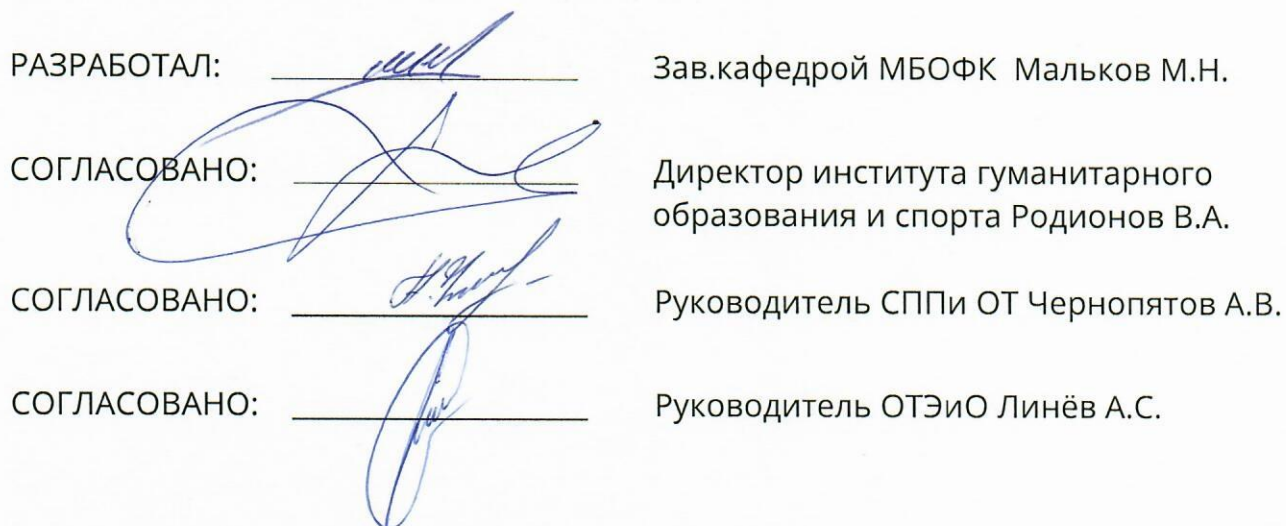 РАЗРАБОТАЛ: Зав.кафедрой МБОФК Мальков М.Н.
СОГЛАСОВАНО: Директор института гуманитарного
образования и спорта Родионов В.А.
СОГЛАСОВАНО: Руководитель СППи ОТ Чернопятов А.В.
СОГЛАСОВАНО: Руководитель ОТЭиО Линёв А.С.